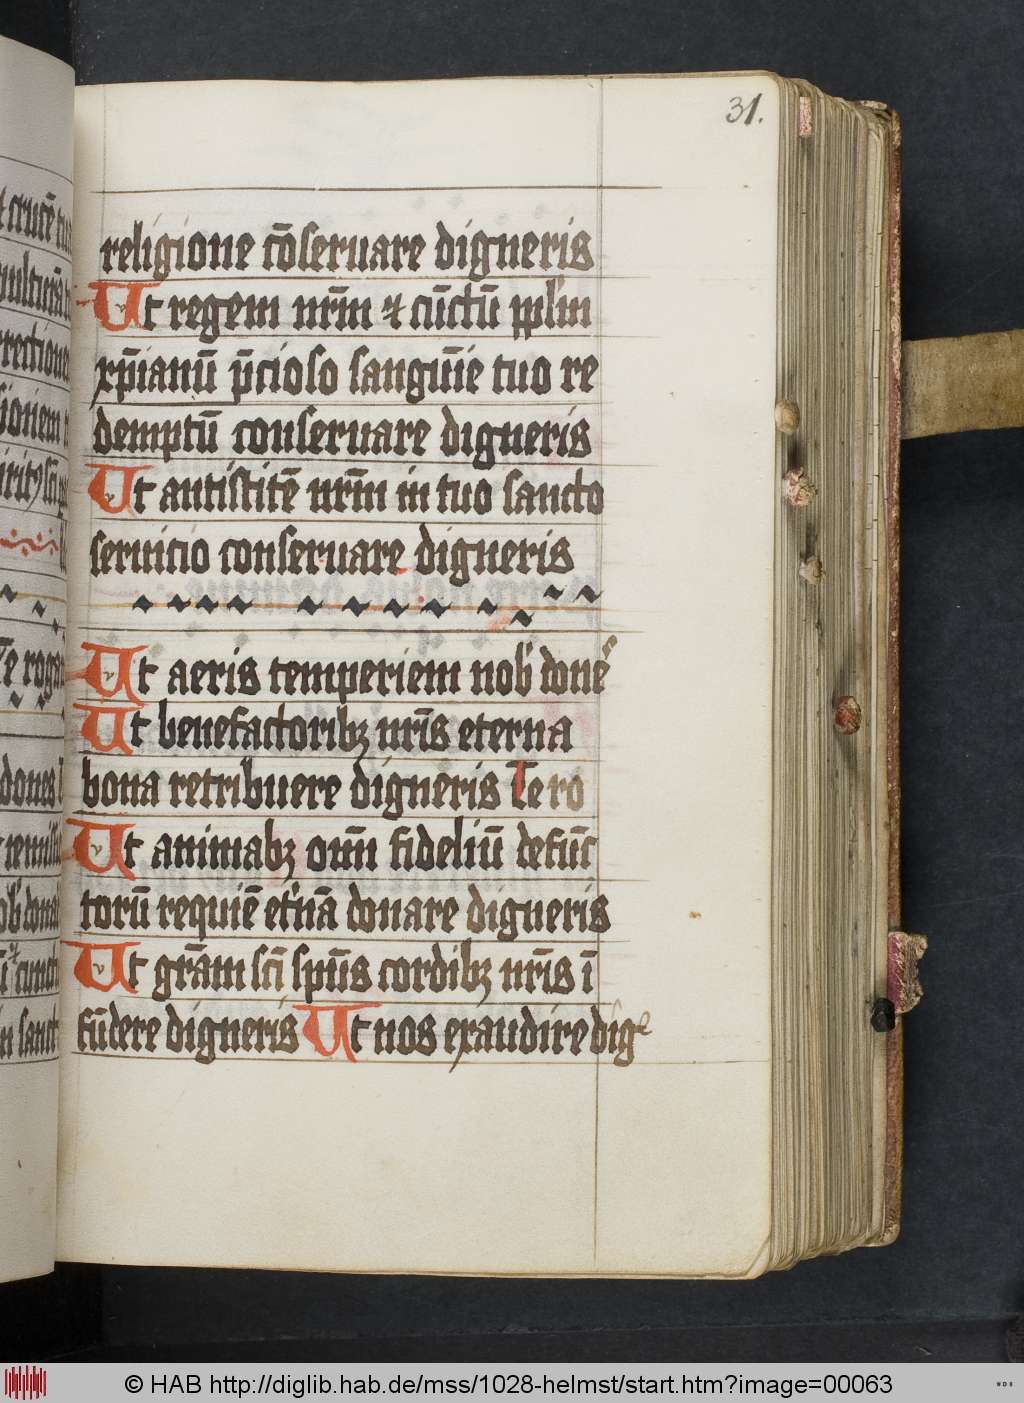 31.
religione cōseruare digneris
Ut regem nr̄m ⁊ cūctū pplm
xp̄ianū p̄cioso sanguīe tuo re
demptū conseruare digneris
Ut antistitē nr̄m in tuo sancto
seruicio conseruare digneris
Ut aeris temperiem nob̄ done᷑
Ut benefactoribꝫ nr̄is eterna
bona retribuere digneris Te ro
Ut animabꝫ oīm fideliū defūc
torū requiē et̄nā donare digneris
Ut grām sc̄i sp̄us cordibꝫ nr̄is ī
fūdere digneris Ut nos exaudire dig᷑
© HAB http://diglib.hab.de/mss/1028-helmst/start.htm?image=00063